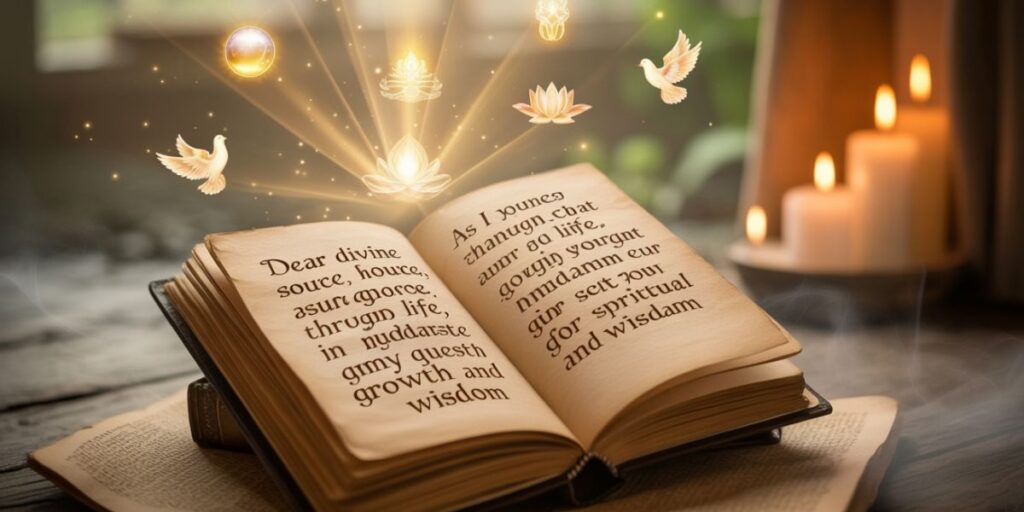 Dear divine
source, houce,
asurɩ gporce,
through life,
in nyddarste
gmmy questh
growth and
wisdom
As I younes
chanugn cbat
aunr go liffe.
gorgin yourgnt
nmdamm eur
giır sct your
gor sprictual
and wisdam